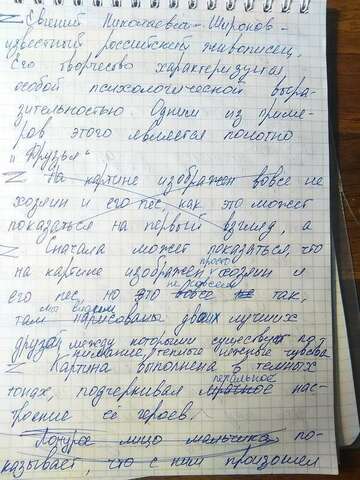 Евгений Николаевич Широков -
известный российский живописец.
Его творчество характеризуется
особой психологической выра-
зительностью. Одним из приме-
ров этого является полотно
"Друзья"
На картине изображен вовсе не
хозяин и его пес, как это может
показаться на первый взгляд, а
Сначала может показаться, что
просто
на картине изображен хозяин и
не совсем
его пес, но это вовсе не так,
мы видим
там нарисованы двоих лучших
друзей между которыми существуют
понимание, теплые нежные чувства
Картина выполнена в темных
печальное
тонах, подчеркивая мрачное нас-
троение её героев.
Понурое лицо мальчика по-
казывает, что с ним произошел